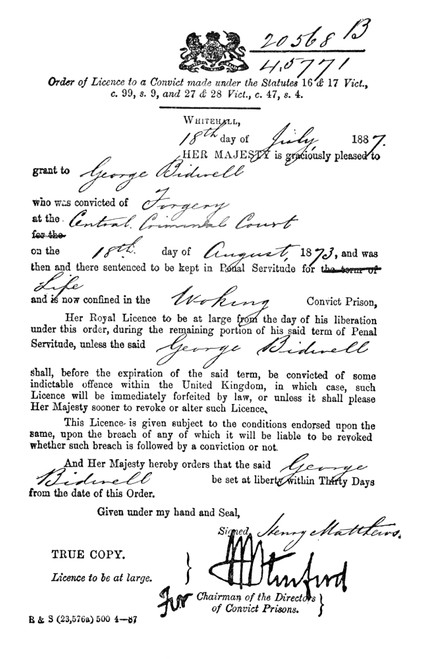 20568 B
45771
Order of Licence to a Convict made under the Statutes 16 & 17 Vict.,
c. 99, s. 9, and 27 & 28 Vict., c. 47, s. 4.
WHITEHALL,
18th day of July 1887.
HER MAJESTY is graciously pleased to
grant to George Bidwell
who was convicted of Forgery
at the Central Criminal Court
for the
on the 18th day of August, 1873, and was
then and there sentenced to be kept in Penal Servitude for the term of
Life
and is now confined in the Woking Convict Prison,
Her Royal Licence to be at large from the day of his liberation
under this order, during the remaining portion of his said term of Penal
Servitude, unless the said George Bidwell
shall, before the expiration of the said term, be convicted of some
indictable offence within the United Kingdom, in which case, such
Licence will be immediately forfeited by law, or unless it shall please
Her Majesty sooner to revoke or alter such Licence.
This Licence is given subject to the conditions endorsed upon the
same, upon the breach of any of which it will be liable to be revoked
whether such breach is followed by a conviction or not.
And Her Majesty hereby orders that the said George
Bidwell be set at liberty within Thirty Days
from the date of this Order.
Given under my hand and Seal,
Signed, Henry Matthews.
TRUE COPY.
Licence to be at large.
For Chairman of the Directors
of Convict Prisons.
R & S (23,576a) 500 4—87